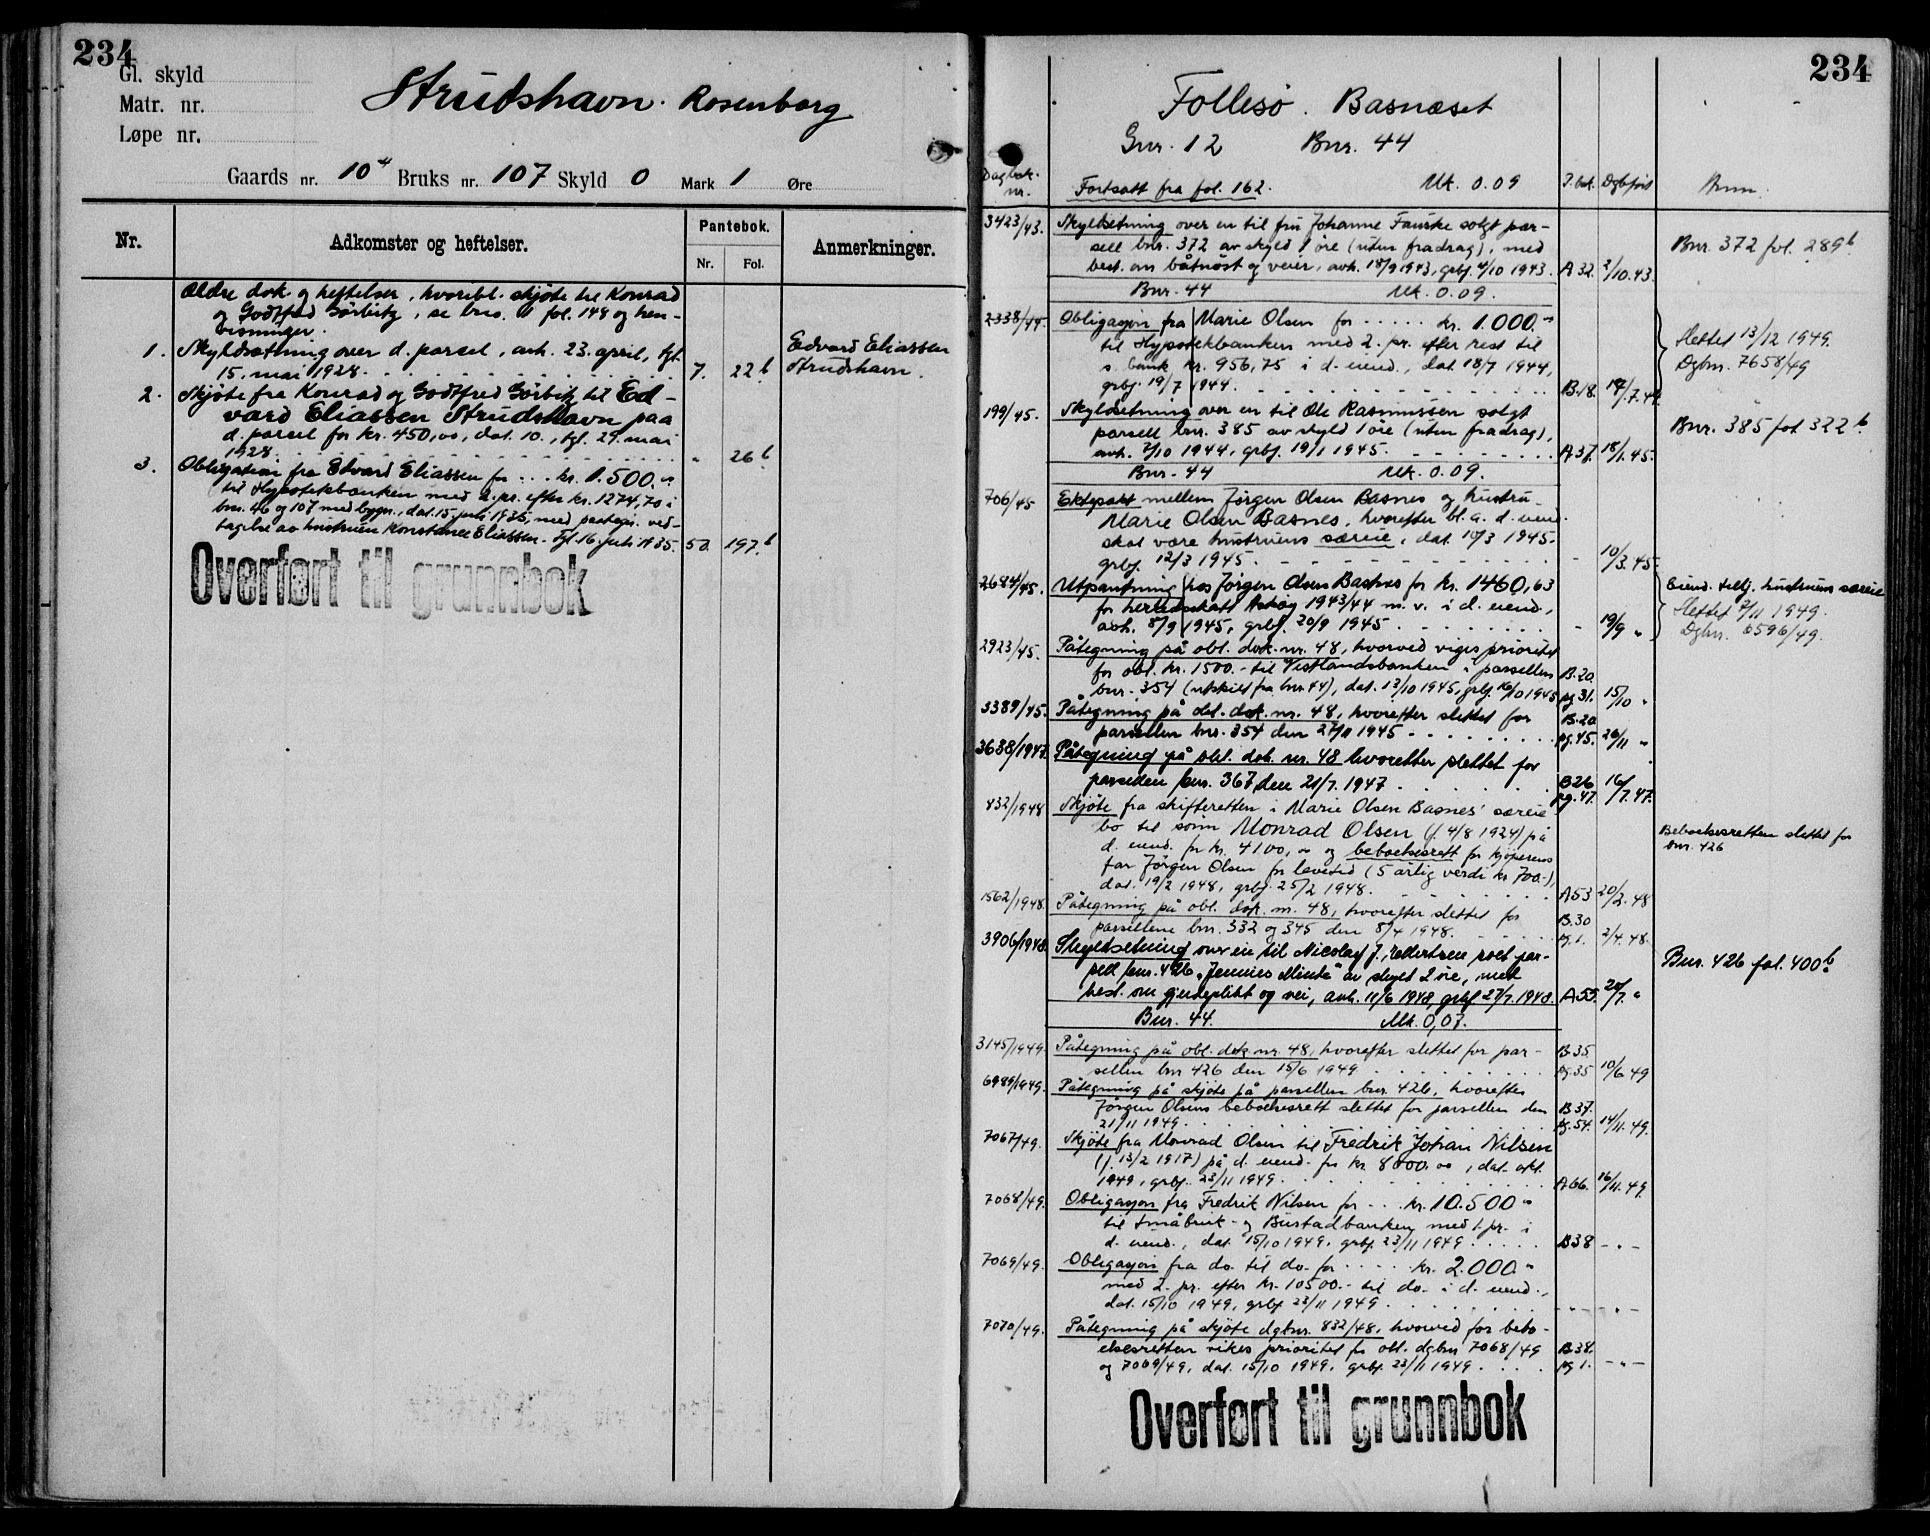 234
Gl. skyld
Matr. nr.
Løpe nr.
Strudshavn. Rosenborg
Gaards nr. 10 Bruks nr. 107 Skyld 0 Mark 1 Øre
Nr.
Adkomster og heftelser.
Pantebok.
Nr. Fol.
Anmerkninger.
Ældre dok. og heftelser, hvoribl. skjøte til Konrad
og Godtfred Görbitz, se bnr. fol. 149 og hen-
visninger.
1. Skyldsætning over d. parsel, avh. 23. april, tgl.
15. mai 1928. 7. 22b
Edvard Eliassen
Strudshavn.
2. Skjøte fra Konrad og Godtfred Görbitz til Ed-
vard Eliassen Strudshavn paa
d. parsel for kr. 450,00, dat. 10., tgl. 29. mai
1928. " 26b
3. Obligation fra Edvard Eliassen for ... kr. 1.500.-
til Hypotekbanken med 2. pr. efter kr. 1274,70 i
bnr. 46 og 107 med bygn., dat. 15. juli 1935, med paategn. ved-
tagelse av hustruen Konstanse Eliassen. Tgl. 16. juli 1935. 50. 197b
Overført til grunnbok
234
Follesø. Basnæset
Gnr. 12 Bnr. 44
Dagbok-
nr.
Fortsatt fra fol. 162. Mk. 0.09 P.bok Dgbført Anm.
3423/43. Skyldsetning over en til fru Johanne Fauske solgt par-
sell bnr. 372 av skyld 1 øre (uten fradrag), med
best. om båtnøst og veier, avh. 18/9 1943, grbf. 4/10 1943. A 32. 2/10.43.
Bnr. 372 fol. 289b
Bnr. 44 Mk. 0.09.
2338/44. Obligasjon fra Marie Olsen for ..... kr. 1.000.-
til Hypotekbanken med 2. pr. efter rest til
s. bank kr. 956,75 i d. eiend., dat. 18/7 1944,
grbf. 19/7 1944. B.18. 19/7.44.
Slettet 13/12 1949.
Dgbnr. 7658/49
199/45. Skyldsetning over en til Ole Rasmussen solgt
parsell bnr. 385 av skyld 1 øre (uten fradrag),
avh. 2/10 1944, grbf. 19/1 1945. A 37. 18/1.45.
Bnr. 385 fol 322b.
Bnr. 44 Mk. 0.09.
706/45 Ektepakt mellem Jørgen Olsen Basnes og hustru
Marie Olsen Basnes, hvorefter bl.a. d. eiend.
skal være hustruens særeie, dat. 10/3 1945.
grbf. 12/3 1945. - 10/3.45.
2684/45. Utpantning hos Jørgen Olsen Basnes for kr. 1460,63
for herredsskatt Askøy 1943/44 m. v. i d. eiend,
avh. 8/9 1945, grbf. 20/9 1945. - 19/9 "
Eiend. tilh. hustruens særeie
Slettet 2/11 1949.
Dgbnr. 6596/49.
2923/45. Påtegning på obl. dok. nr. 48, hvorved viges prioritet
for obl. kr. 1500.- til Vestlandsbanken i parsellen
bnr. 354 (utskilt fra bnr. 44), dat. 13/10 1945, grbf. 16/10 1945 B.20. pg 31. 15/10 "
3389/45. Påtegning på obl. dok. nr. 48, hvorefter slettet for
parsellen bnr. 354 den 27/11 1945 B.20 pg. 45. 26/11 "
3638/1947. Påtegning på obl. dok. nr. 48 hvoretter slettet for
parsellen bnr. 367 den 21/7. 1947. B26 pg. 47. 16/7.47.
432/1948 Skjøte fra skifteretten i Marie Olsen Basnes' særeie-
bo til sønn Monrad Olsen (f. 4/8 1924) på
d. eiend. for kr. 4100,00 og beboelsesrett for kjøperens
far Jørgen Olsen for levetid (5 årlig verdi kr 700.-),
dat. 19/2 1948, grbf. 25/2 1948. A53 20/2.48
Beboelsesretten slettet for
bnr. 426
1562/1948. Påtegning på obl. dok. nr. 48, hvorefter slettet for
parsellene bnr. 332 og 345 den 8/4 1948. B.30 pg. 1. 2/4.48.
3906/1948. Skyldsetning over en til Nicolay J. Ellertsen solt par-
sell bnr. 426 "Jennies Minde" av skyld 2 øre, med
best. om gjerdeplikt og vei, avh. 11/6 1948, grbf. 27/7. 1948. A55. 20/7. "
Bnr. 426 fol. 400b
Bnr. 44. Mk. 0,07.
3145/1949. Påtegning på obl. dok nr. 48, hvorefter slettet for par-
sellen bnr 426 den 15/6 1949 B35 pg. 35 10/6 49
6989/1949. Påtegning på skjøte på parsellen bnr. 426, hvorefter
Jørgen Olsens beboelsesrett slettet for parsellen den
21/11 1949. B 37. pg. 54. 14/11.49.
7067/49. Skjøte fra Monrad Olsen til Fredrik Johan Nilsen
(f. 13/2 1917) på d. eiend. for kr. 8000.00, dat. okt.
1949, grbf. 23/11 1949. A 66. 16/11.49
7068/49. Obligasjon fra Fredrik Nilsen for ... kr. 10.500.-
til Småbruk- og Bustadbanken med 1. pr. i
d. eiend., dat. 15/10 1949, grbf. 23/11 1949. B38 - " -
7069/49. Obligasjon fra do. til do. for ..... kr. 2.000.-
med 2. pr. efter kr. 10500.- til do. i d. eiend.,
dat. 15/10 1949, grbf 23/11 1949. - " - - " -
7070/49. Påtegning på skjøte dgbnr. 832/48, hvorved for bebo-
elsesretten vikes prioritet for obl. dgbnr 7068/49
og 7069/49, dat. 15/10 1949, grbf. 23/11 1949. B.38. pg 1. - " -
Overført til grunnbok